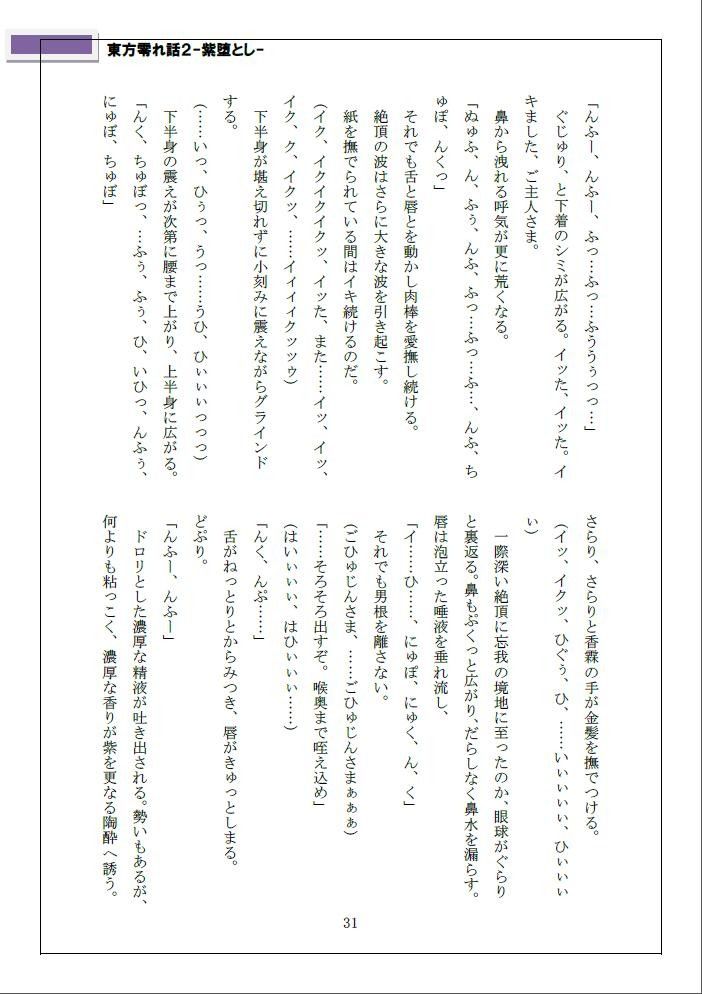 東方零れ話２-紫堕とし-
「んふー、んふー、ふっ…ふっ…ふううぅっっ…」
ぐじゅり、と下着のシミが広がる。イッた、イッた。イ
キました、ご主人さま。
鼻から洩れる呼気が更に荒くなる。
「ぬゅふ、ん、ふぅ、んふ、ふっ…ふっ…ふ…、んふ、ち
ゅぽ、んくっ」
それでも舌と唇とを動かし肉棒を愛撫し続ける。
絶頂の波はさらに大きな波を引き起こす。
紙を撫でられている間はイキ続けるのだ。
(イク、イクイクイクッ、イッた、また……イッ、イッ、
イク、ク、イクッ、……イィィィクッッゥ)
下半身が堪え切れずに小刻みに震えながらグラインド
する。
(……いっ、ひぅっ、うっ……うひ、ひぃぃぃっっっ)
下半身の震えが次第に腰まで上がり、上半身に広がる。
「んく、ちゅぼっ、…ふぅ、ふぅ、ひ、いひっ、んふぅ、
にゅぼ、ちゅぼ」
さらり、さらりと香霖の手が金髪を撫でつける。
(イッ、イクッ、ひぐぅ、ひ、……いぃぃぃぃ、ひぃぃぃ
ぃ)
一際深い絶頂に忘我の境地に至ったのか、眼球がぐらり
と裏返る。鼻もぷくっと広がり、だらしなく鼻水を漏らす。
唇は泡立った唾液を垂れ流し、
「イ……ひ……、にゅぽ、にゅく、ん、く」
それでも男根を離さない。
(ごひゅじんさま、……ごひゅじんさまぁぁぁ)
「……そろそろ出すぞ。喉奥まで咥え込め」
(はいぃぃぃ、はひぃぃぃ……)
「んく、んぷ……」
舌がねっとりとからみつき、唇がきゅっとしまる。
どぷり。
「んふー、んふー」
ドロリとした濃厚な精液が吐き出される。勢いもあるが、
何よりも粘っこく、濃厚な香りが紫を更なる陶酔へ誘う。
31